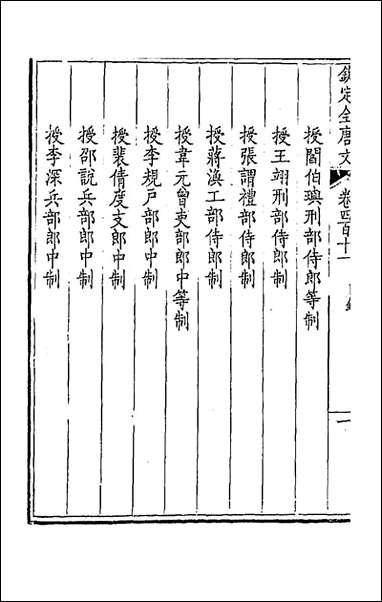 欽定全唐文 卷四百十一 目錄 一
授閻伯璵刑部侍郎等制
授王翊刑部侍郎制
授張謂禮部侍郎制
授蔣渙工部侍郎制
授韋元曾吏部郎中等制
授李規戶部郎中制
授裴倩度支郎中制
授邵說兵部郎中制
授李深兵部郎中制